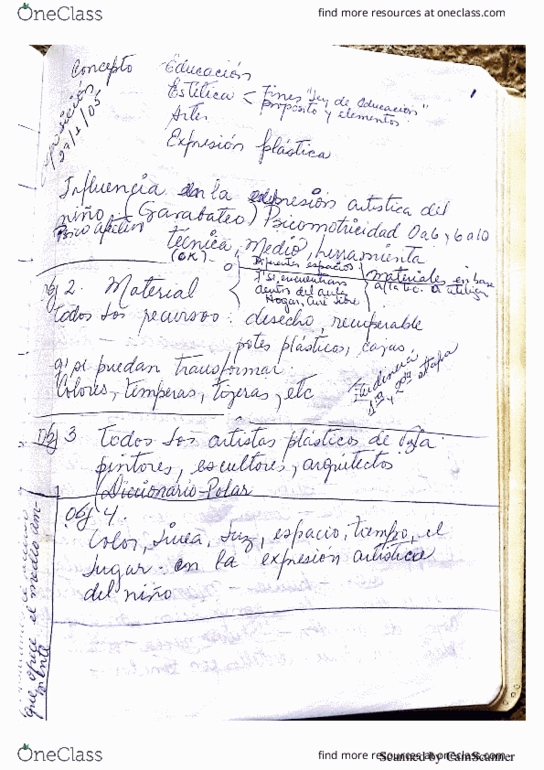 OneClass
find more resources at oneclass.com
1
Concepto
Educación
Estética < Fines "Ley de Educación"
propósito y elementos
Arte
Expresión plástica
Influencia en la expresión artística del
niño (Garabateo) Psicomotricidad 0 a 6 y 6 a 10
Psico afectivo
técnica, Medio, herramienta
(OK).
Diferentes espacios
q' se encuentran
dentro del aula
Hogar, aire libre
materiales en base
a utilizar
Obj 2. Material
todos los recursos: desecho, recuperable
potes plásticos, cajas,
q' se puedan transformar.
Colores, temperas, tijeras, etc
1ra y 2da etapa
Obj 3 Todos los artistas plásticos de Vzla.
pintores, escultores, arquitectos
(Diccionario-Polar
Obj 4.
Color, línea, luz, espacio, tiempo, el
lugar - en la expresión artística
del niño
que ofrece el medio am-
OneClass
find more resources at oneclass.com
Scanned by CamScanner